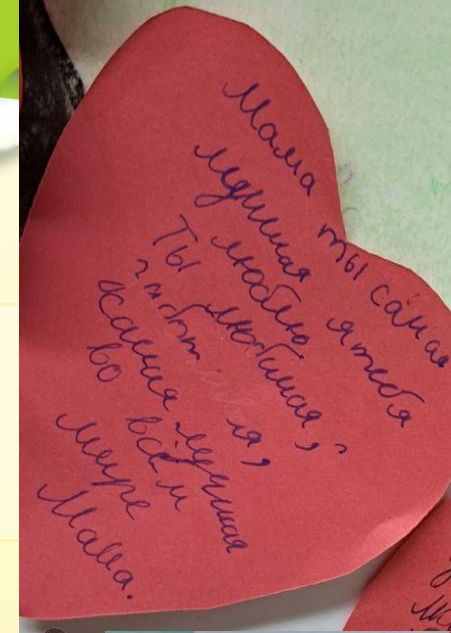 Мама ты самая
лудшая ятебя
люблю
ТЫ любимая,
самая лучшая
во всём
мире
Мама.